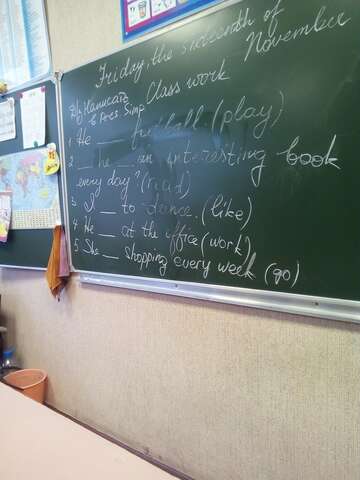 Friday, the sixteenth of
November
Class work
Напишите
в Pres. Simp.
1. He __ football. (play)
2. __ he __ an interesting book
every day? (read)
3 I __ to dance. (like)
4 He __ at the office (work)
5 She __ shopping every week (go)